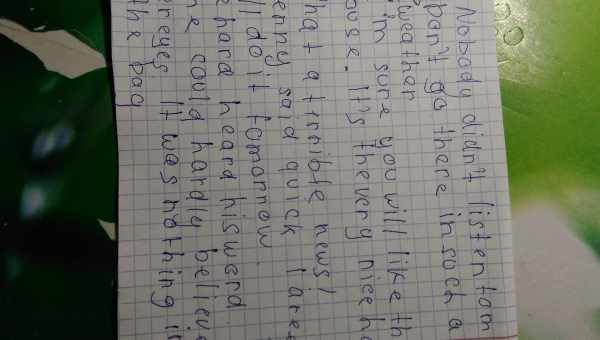 Nobody didn't listen to m
Don't go there in such a
weather
I'm sure you will like th
ouse. It's the very nice h
hat a terrible news!
enny said quick I are
ll do it tomorrow
e hard heard his word.
he could hardly believe
er eyes It was nothing i
the bag